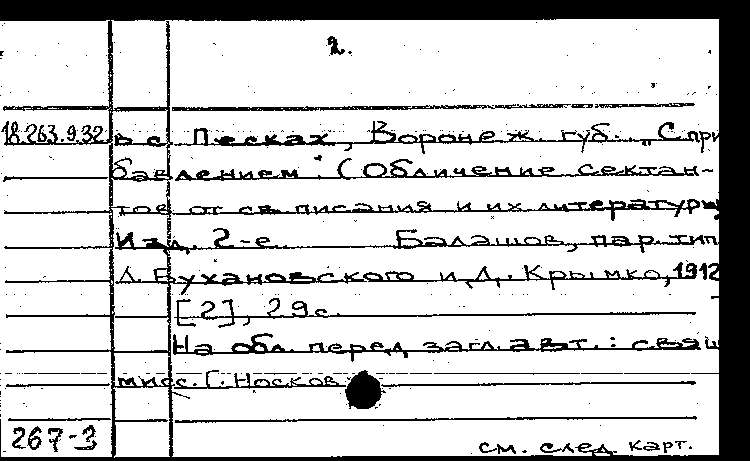 2.
18.263.9.32 в с. Песках, Воронеж. губ. „С при
бавлением": (Обличение сектан-
тов от св. писания и их литературы
Изд. 2-е Балашов, пар. тип
Л. Бухановского и Л. Крымко, 1912
[2], 29 с.
На обл. перед загл. авт.: свящ
мисс. Г. Носков
267-3 см. след. карт.